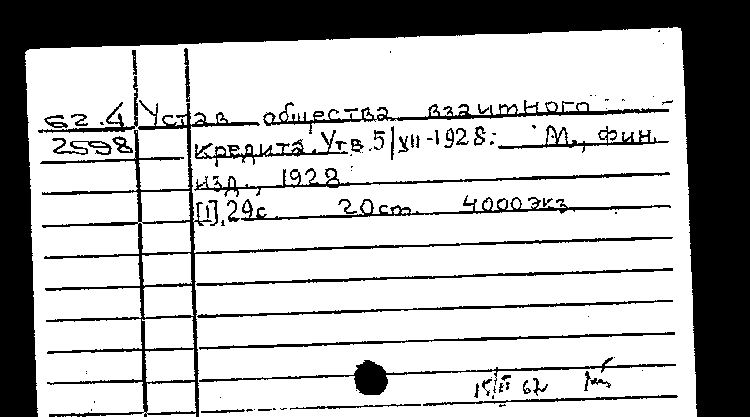 62.4 Устав общества взаимного
2598 кредита. Утв. 5/XII-1928. М., фин.
изд., 1928
[1], 29с. 20ст. 4000экз.
15/II 62